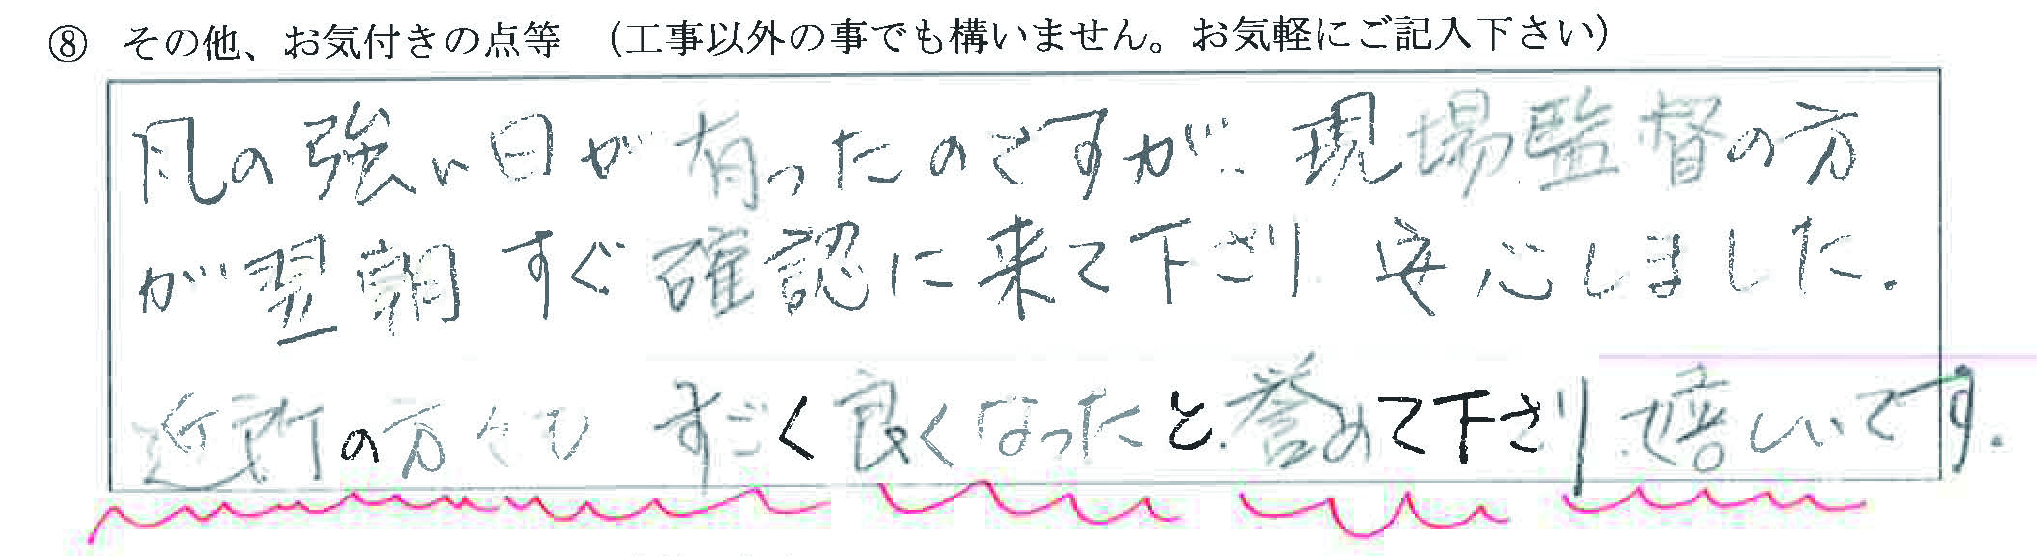 ⑧ その他、お気付きの点等 （工事以外の事でも構いません。お気軽にご記入下さい）
風の強い日が有ったのですが、現場監督の方
が翌朝すぐ確認に来て下さり 安心しました。
近所の方々も すごく良くなったと誉めて下さり嬉しいです。